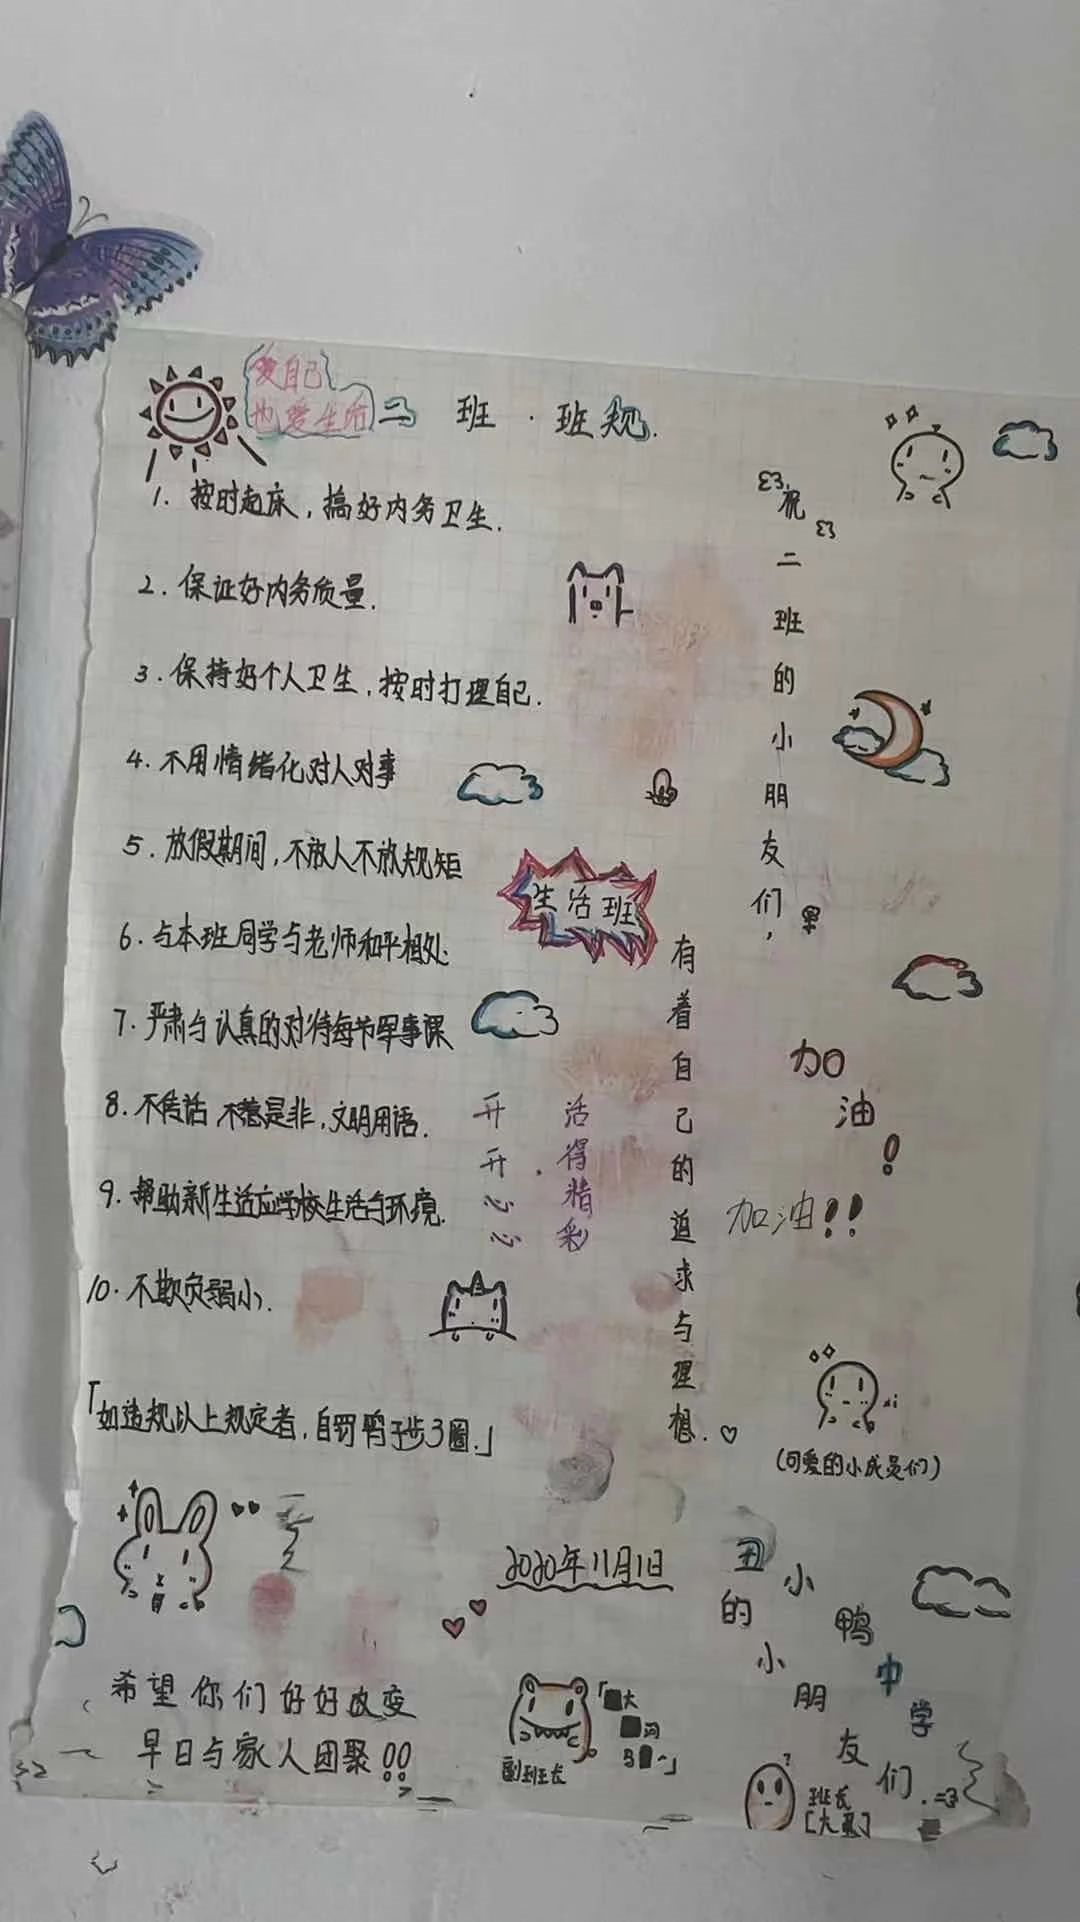 爱自己
也爱生活
二 班 · 班规.
1. 按时起床，搞好内务卫生.
2. 保证好内务质量.
3. 保持好个人卫生，按时打理自己.
4. 不用情绪化对人对事
5. 放假期间，不放人不放规矩
6. 与本班同学与老师和平相处
7. 严肃与认真的对待每节军事课
8. 不传话 不惹是非，文明用语.
9. 帮助新生适应学校生活与环境.
10. 不欺负弱小.
「如违规以上规定者，自罚鸭子步3圈.」
生活班
开开心心
活得精彩
祝二班的小朋友们，
有着自己的追求与理想.
加油！
加油！！
(可爱的小成员们)
2020年11月1日
丑小鸭中学
的小朋友们.
希望你们好好改变
早日与家人团聚!!
副班长
班长